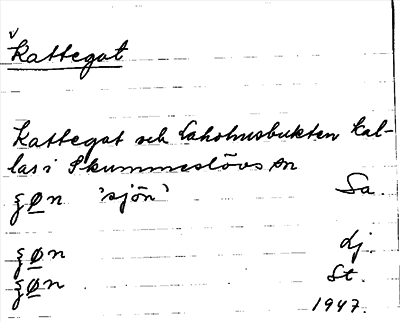 v
Kattegat
Kattegat och Laholmsbukten kal-
las i Skummeslövs sn
ʂøn 'sjön' Sa.
ʂøn dj.
ʂøn St.
1947.